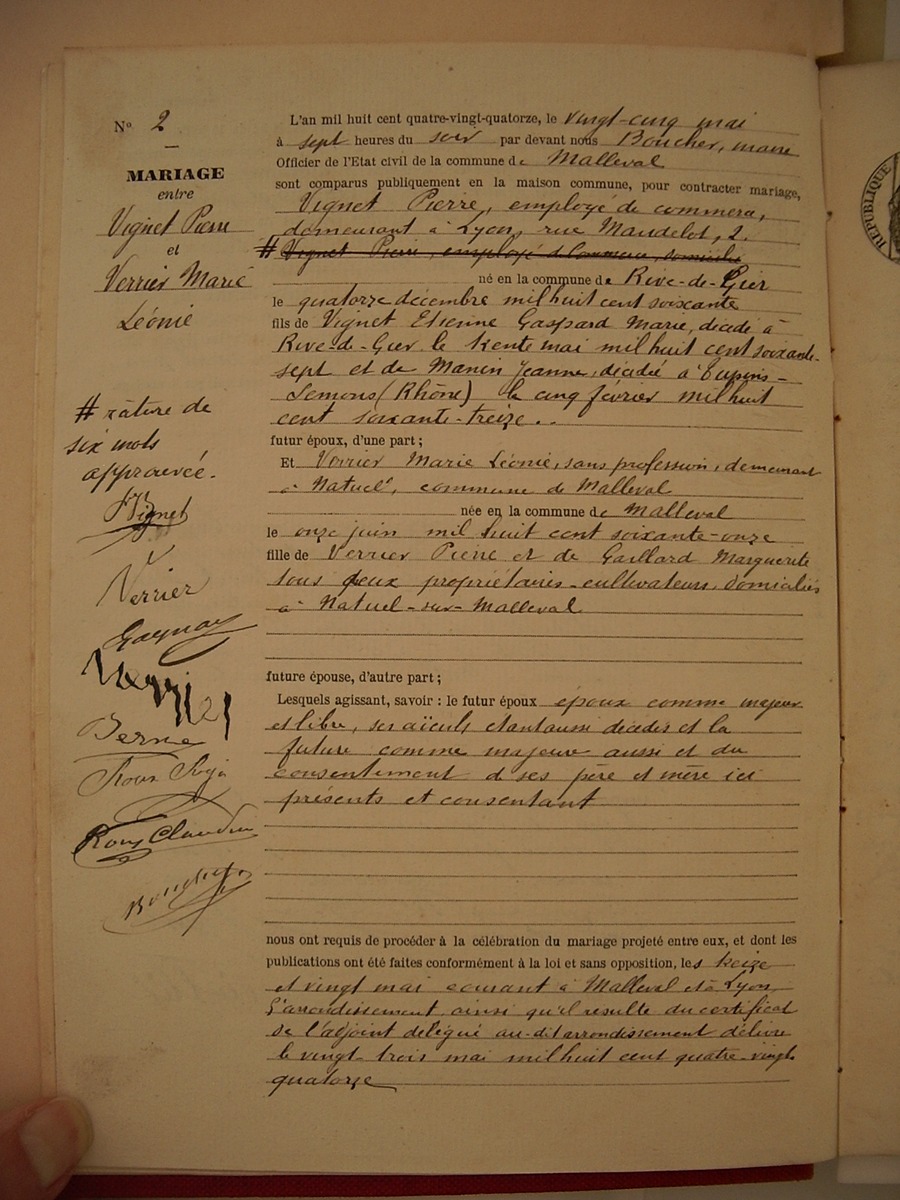 N° 2
MARIAGE
entre
Vignet Pierre
et
Verrier Marie
Léonie
# râture de
six mots
approuvée.
Vignet
Verrier
Berne
Roux Claudius
Boucher
L'an mil huit cent quatre-vingt-quatorze, le vingt-cinq mai
à sept heures du soir par devant nous Boucher, maire
Officier de l'Etat civil de la commune de Malleval
sont comparus publiquement en la maison commune, pour contracter mariage,
Vignet Pierre, employé de commerce,
demeurant à Lyon, rue Mandelot, 2.
# Vignet Pierre, employé de Commerce, domicilié
né en la commune de Rive-de-Gier
le quatorze décembre mil huit cent soixante
fils de Vignet Etienne Gaspard Marie, décédé à
Rive-de-Gier le trente mai mil huit cent soixante-
sept et de Manin Jeanne, décédée à Tupins-
Semons (Rhône) le cinq février mil huit
cent soixante-treize..
futur époux, d'une part ;
Et Verrier Marie Léonie, sans profession, demeurant
à Natuel, commune de Malleval
née en la commune de Malleval
le onze juin mil huit cent soixante-onze
fille de Verrier Pierre et de Gaillard Marguerite
tous deux propriétaires-cultivateurs, domiciliés
à Natuel-sur-Malleval
future épouse, d'autre part ;
Lesquels agissant, savoir : le futur époux époux comme majeur
et libre, ses aïeuls étant aussi décédés et la
future comme majeure aussi et du
consentement de ses père et mère ici
présents et consentant
nous ont requis de procéder à la célébration du mariage projeté entre eux, et dont les
publications ont été faites conformément à la loi et sans opposition, les treize
et vingt mai courant à Malleval et à Lyon,
arrondissement ainsi qu'il resulte du certificat
de l'adjoint délégué au-dit arrondissement délivré
le vingt trois mai mil huit cent quatre-vingt
quatorze
REPUBLIQUE